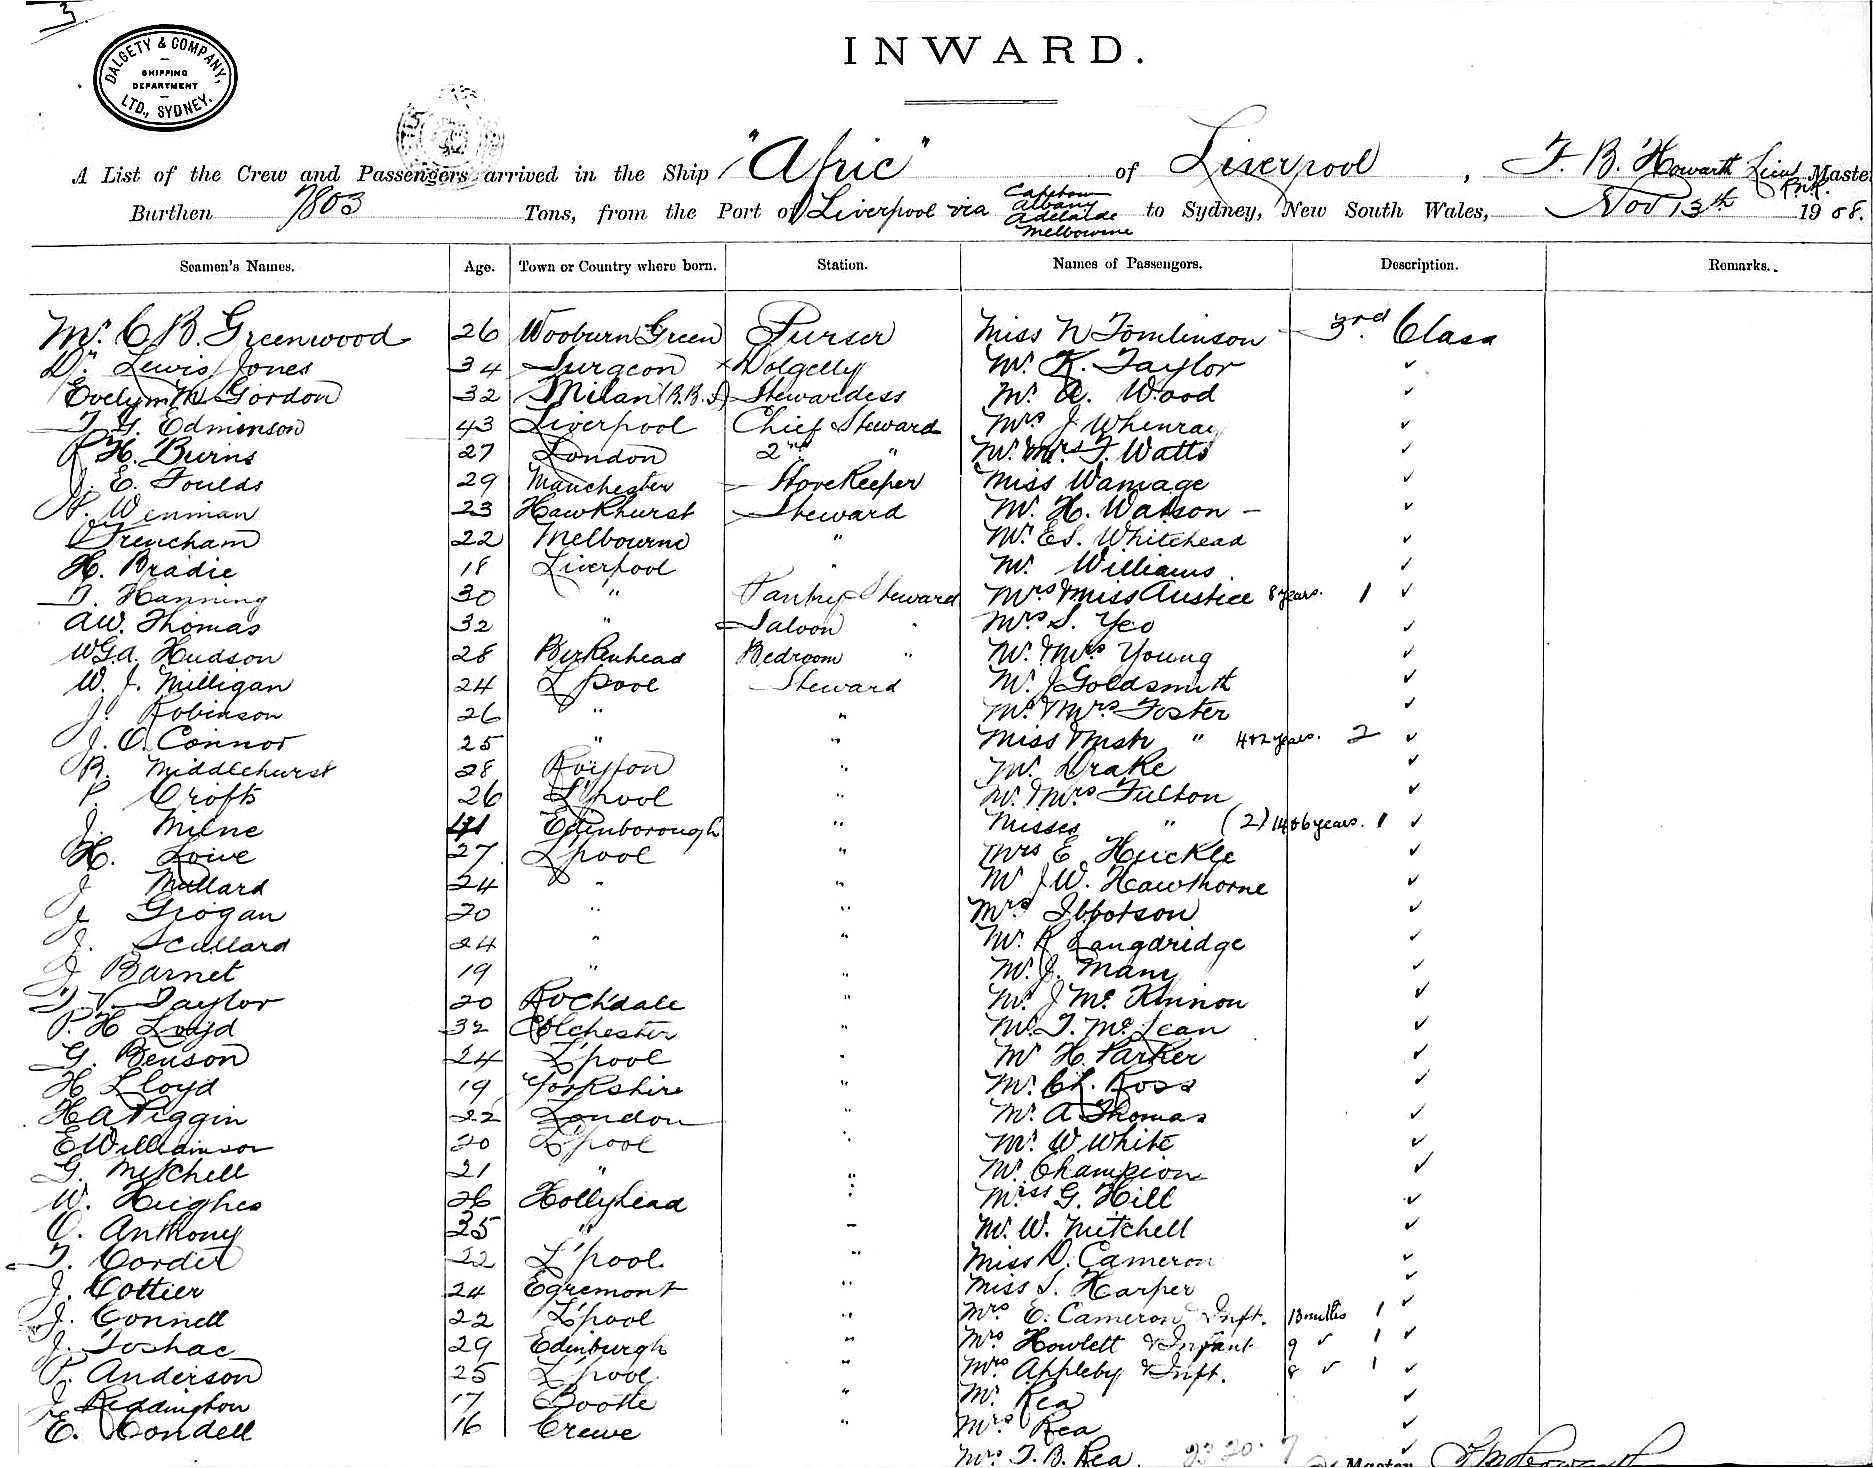 3
DALGETY & COMPANY, LTD., SYDNEY.
SHIPPING
DEPARTMENT
INWARD.
A List of the Crew and Passengers arrived in the Ship "Afric" of Liverpool, F. B. Howarth Lieut RNR. Master
Burthen 7803 Tons, from the Port of Liverpool via Capetown Albany Adelaide Melbourne to Sydney, New South Wales, Nov 13th 1908.
Seamen's Names. Age. Town or Country where born. Station. Names of Passengers. Description. Remarks.
Mr. C B. Greenwood 26 Wooburn Green Purser Miss N Tomlinson 3rd Class
Dr. Lewis Jones 34 Surgeon × Dolgelly Mr. K. Taylor ✓
Evelyn M Gordon 32 Milan (B.B.S) Stewardess Mr. A. Wood ✓
T. G. Edminson 43 Liverpool Chief Steward Mrs J Whenray ✓
P H. Burns 27 London 2nd " Mr. Mrs F. Watts ✓
J. E. Foulds 29 Manchester Storekeeper Miss Wamage ✓
P. Wenman 23 Hawkhurst Steward Mr. H. Watson - ✓
Trencham 22 Melbourne " Mr. E.S. Whitehead ✓
H. Bradie 18 Liverpool " Mr. Williams. ✓
T. Hanning 30 " Pantry Steward Mrs & Miss Austice 8 years. 1 ✓
A.W. Thomas 32 " Saloon " Mrs S. Yeo ✓
W.G.A. Hudson 28 Birkenhead Bedroom " Mr. Mrs Young ✓
W. J. Milligan 24 L'pool Steward Mr. J Goldsmith ✓
J. Robinson 26 " " Mr. Mrs. Foster ✓
J. O. Connor 25 " " Miss Mstr " 4 & 2 years. 2 ✓
R. Middlehurst 28 Royton " Mr. Drake ✓
P. Crofts 26 L'pool " Mr. Mrs Fulton ✓
J. Milne Edinborough " Misses " (2) 14 & 6 years. 1 ✓
H. Lowe 27 L'pool " Mrs E Huckle ✓
J Millard 24 " " Mr J W. Hawthorne ✓
J Grogan 20 " " Mrs Ibbotson ✓
J. Scullard 24 " " Mr. R Langdridge ✓
J Barnet 19 " " Mr. J. Many ✓
T V Taylor 20 Rochdale " Mr. J Mc Kinnon ✓
P. H Loyd 32 Colchester " Mr. T. Mc Lean ✓
G. Benson 24 L'pool " Mr H. Parker ✓
H Lloyd 19 Yorkshire " Mr. Ch. Ross ✓
H A Piggin 22 London " Mr. A Thomas ✓
E Williamson 20 L'pool " Mr. W White ✓
G. Mitchell 21 " " Mr. Champion ✓
W. Hughes 26 Hollyhead " Miss G. Hill ✓
O. Anthony 35 " " Mr. W. Mitchell ✓
T. Corder 22 L'pool. " Miss D. Cameron ✓
J. Cottier 24 Egremont " Miss S. Harper ✓
J. Connell 22 L'pool " Mrs E. Cameron Inft. 13 mnths 1 ✓
J. Toshac 29 Edinburgh " Mrs Howlett & Infant 9 ✓ 1 ✓
P. Anderson 25 L'pool. " Mrs Appleby & Inft. 8 ✓ 1 ✓
J Reddington 17 Bootle " Mr. Rea ✓
E. Condell 16 Crewe " Mrs Rea ✓
Mrs F. B. Rea. 2320. 7 Master ✓